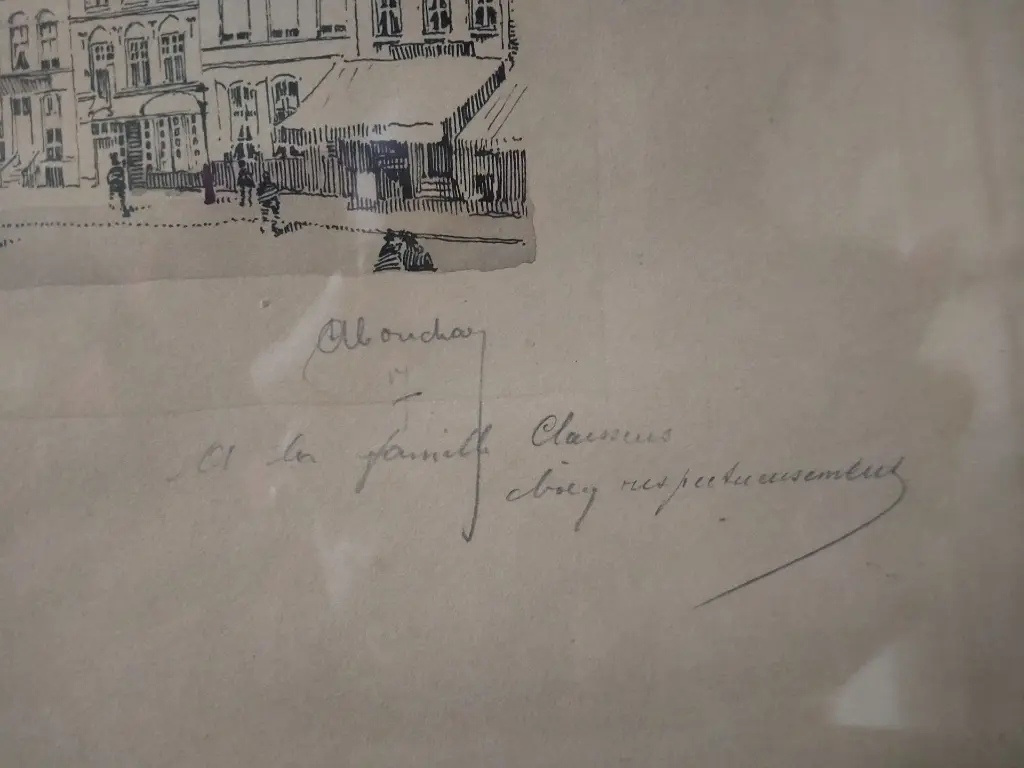 Abouchar
A la famille Claessens
bien respectueusement